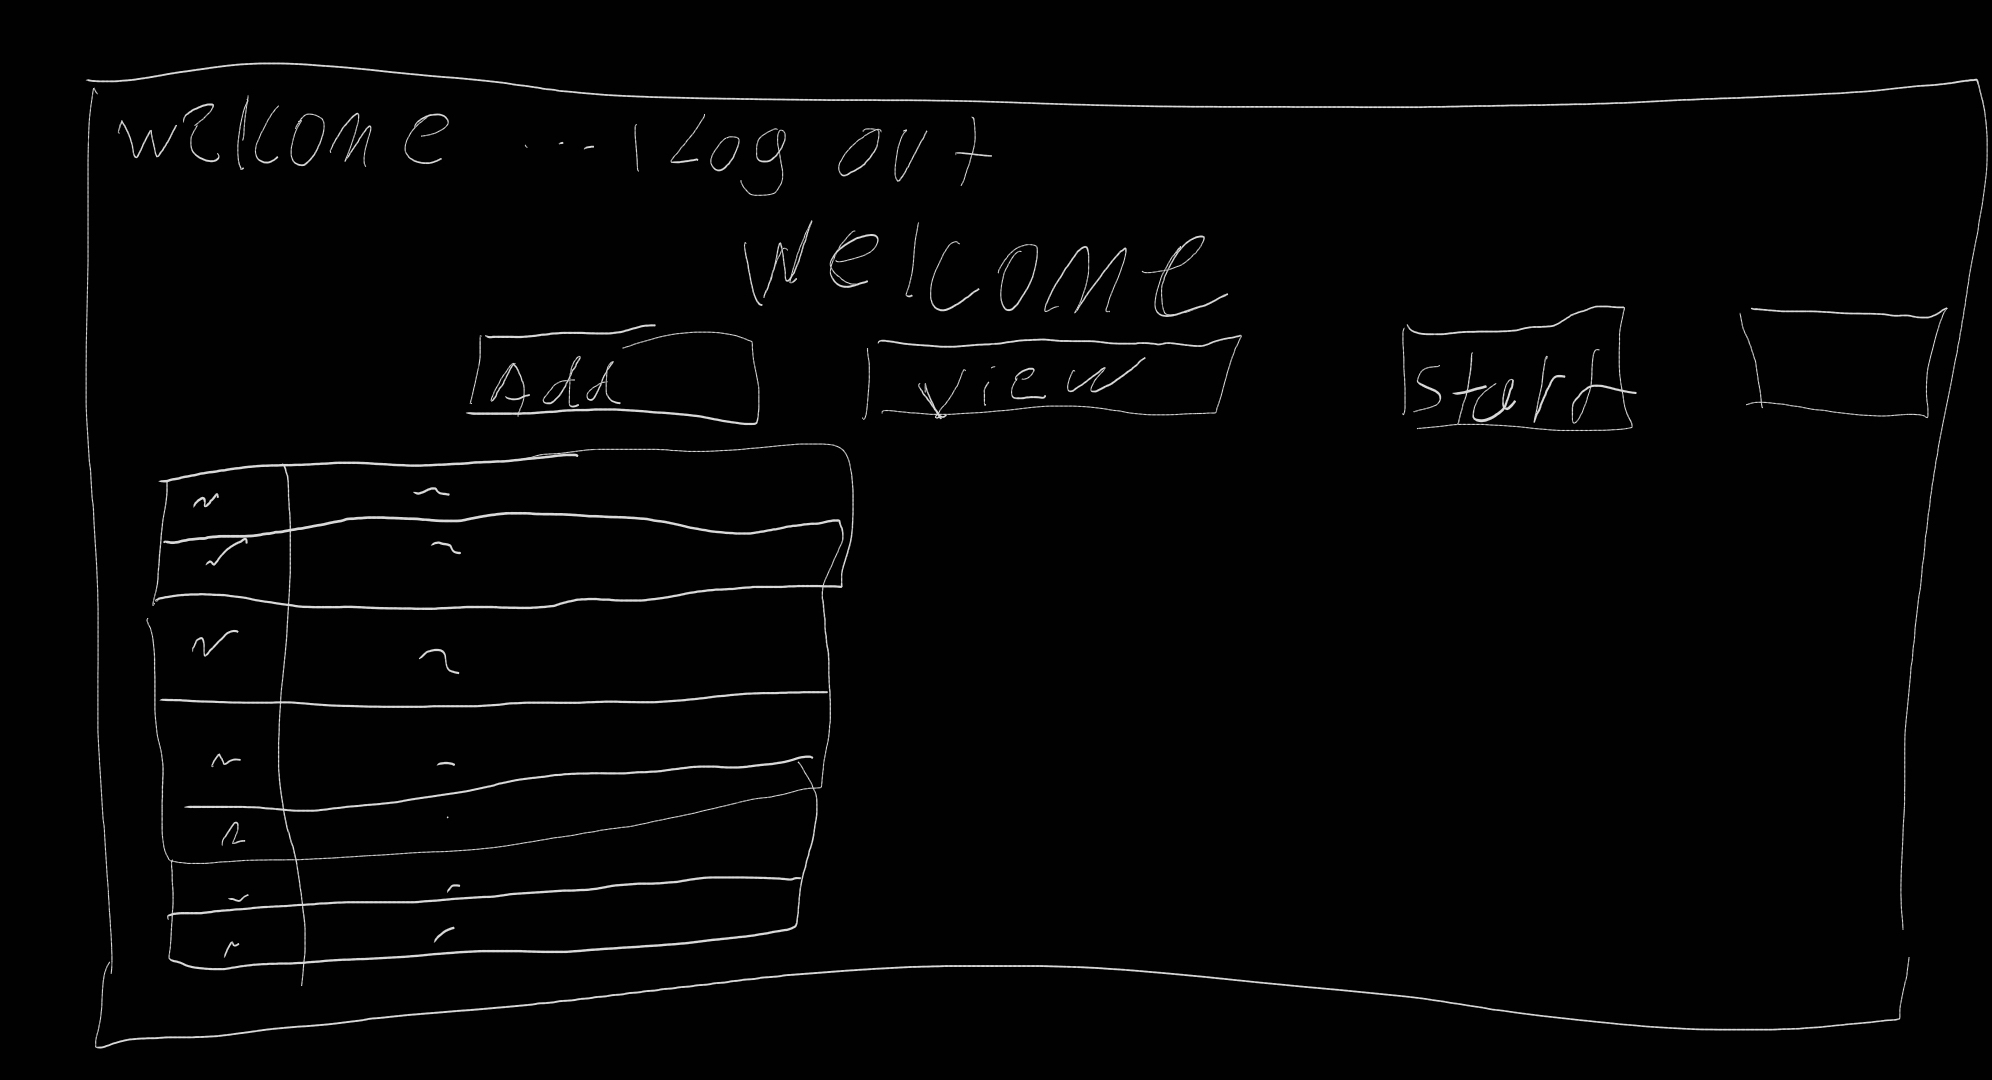 welcome ... | Log out
welcome
Add view start